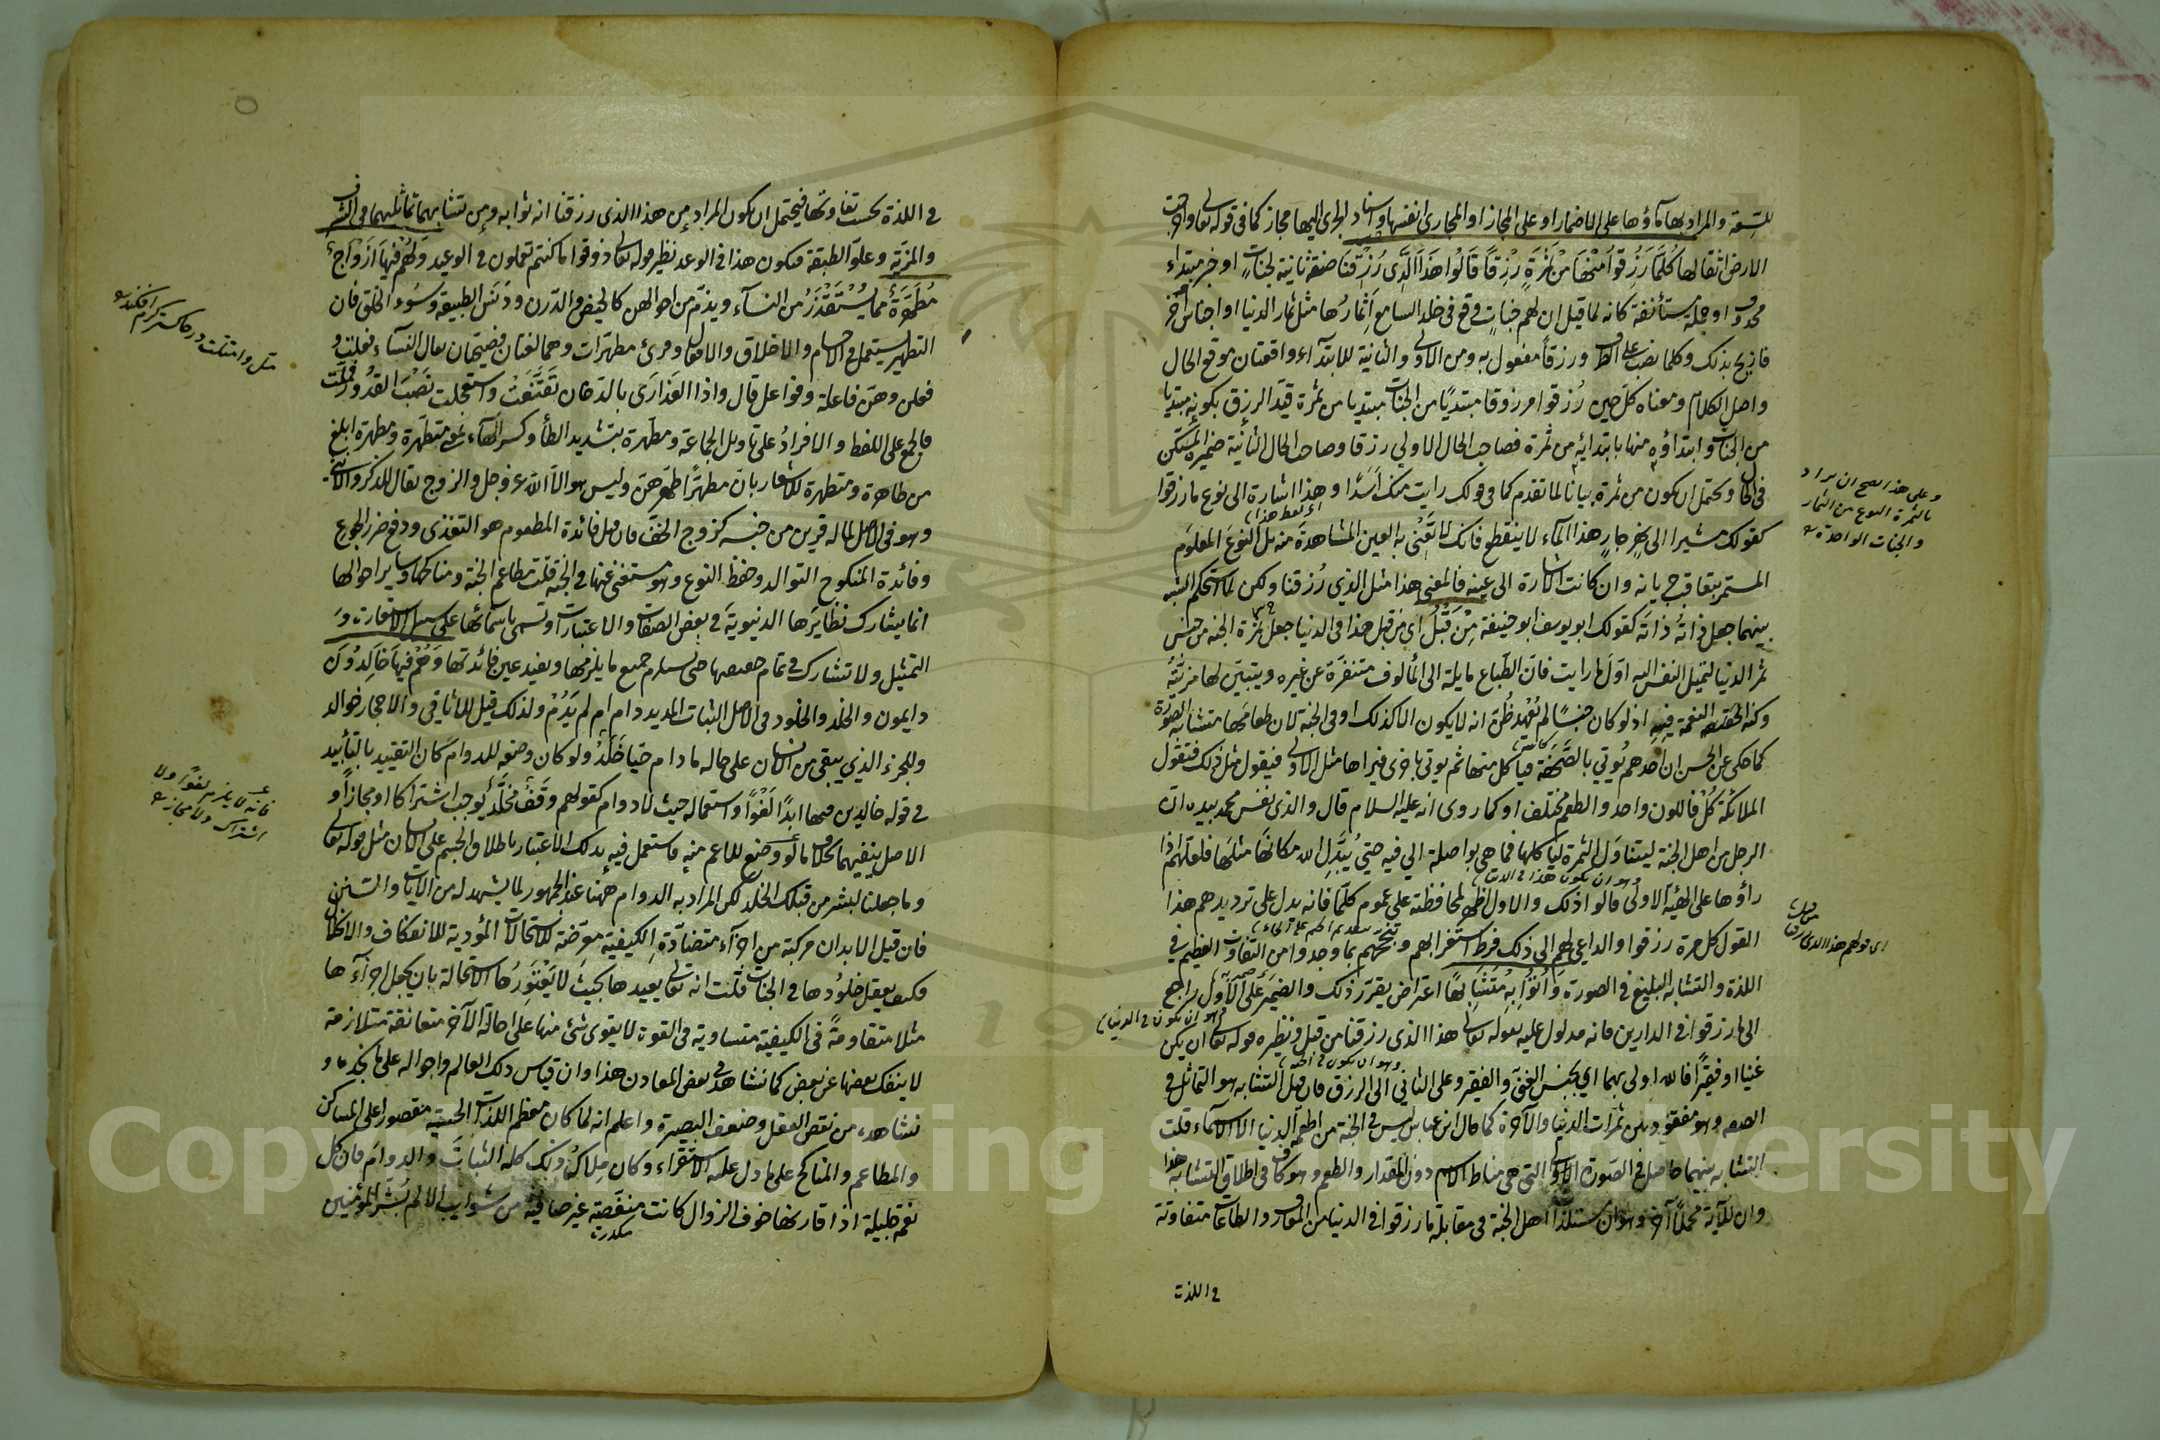 للسعة والمراد بها ماؤها على الاضمار او على المجاز او المجاري انفسها واسناد الجري اليها مجاز كما في قوله تعالى واخرجت
الارض اثقالها كُلَّمَا رُزِقُوا مِنْهَا مِنْ ثَمَرَةٍ رِزْقًا قَالُوا هَذَا الَّذِي رُزِقْنَا صفة ثانية لجنات او خبر مبتداء
محذوف او جملة مستأنفة كانه لما قيل ان لهم جنات وقع في خلد السامع أثمارها مثل ثمار الدنيا او اجناس اخر
فازيح بذلك وكلما نصب على الظرف ورزقاً مفعول به ومن الاولى والثانية للابتدآء واقعتان موقع الحال
واصل الكلام ومعناه كل حين رُزقوا مرزوقا مبتديًا من الجنات مبتديا من ثمرة قيد الرزق بكونه مبتديا
من الجنات وابتداؤه منها بابتدائه من ثمرة فصاحب الحال الاولي رزقا وصاحب الحال الثانية ضميره المستكن
في الحال ويحتمل ان يكون من ثمرة بيانا لما تقدم كما في قولك رايت منك أسدًا وهذا اشارة الى نوع ما رزقوا
كقولك مشيرا الى نهر جار هذا الماء لا ينقطع فانك لا تعني به العين المشاهدة منه بل النوع المعلوم
المستمر بتعاقب جريانه وان كانت الاشارة الى عينه فالمعنى هذا مثل الذي رُزقنا ولكن لما استحكم الشبه
بينهما جعل ذاتُه ذاتَه كقولك ابو يوسف ابو حنيفة مِنْ قَبْلُ اى من قبل هذا في الدنيا جعل ثمرة الجنة من جنس
ثمر الدنيا لتميل النفس اليه اول ما رايت فان الطباع مايلة الى المألوف متنفرة عن غيره ويتبين لها مزيته
وكنه النعمة فيه اذ لو كان جنسًا لم يُعْهد ظُنّ انه لا يكون الا كذلك او في الجنة لان طعامها متشابه الصورة
كما حكى عن الحسن ان احدهم يُوتي بالصَّحْفة فياكل منها ثم يوتي باخرى فيراها مثل الاولى فيقول مثل ذلك فتقول
الملائكة كُلْ فاللون واحد والطعم مختلف او كما روى انه عليه السلام قال والذي نفس محمد بيده ان
الرجل من اهل الجنة ليتناول الثمرة لياكلها فما هي بواصلة الي فيه حتي يُبَدِّل الله مكانها مثلها فلعلهم اذا
رأوها على الهيئة الاولى قالوا ذلك والاول اظهر لمحافظته على عموم كلما فانه يدل على ترديدهم هذا
القول كل مرة رزقوا والداعي لهم الى ذلك فرط استغرابهم وتبجحهم بما وجدوا من التفاوت العظيم في
اللذة والتشابه البليغ في الصورة وَأُتُوا بِهِ مُتَشَابِهًا اعتراض يقرر ذلك والضمير على الاول راجع
الى ما رزقوا في الدارين فانه مدلول عليه بقوله تعالى هذا الذي رزقنا من قبل ونظيره قوله تعالى ان يكن
غنيا او فقيرا فالله اولى بهما اي بجنس الغنى والفقير وعلى الثاني الى الرزق فان قيل التشابه هو التماثل في
الصفه وهو مفقود بين ثمرات الدنيا والآخرة كما قال ابن عباس ليس في الجنة من اطعمة الدنيا الا الاسماء قلت
التشابه بينهما حاصل في الصورة التي هي مناط الاسم دون المقدار والطعم وهو كاف في اطلاق التشابه هذا
وان للآية محملا آخر وهو ان مستلذات اهل الجنة في مقابلة ما رزقوا في الدنيا من المعارف والطاعات متفاوتة
في اللذت
وعلى هذا يصح ان يراد
بالثمرة النوع من الثمار
والجنات الواحدة
اى قولهم هذا الذى رزقنا
وهو ان يكون في الدنيا
في اللذة بحسب تفاوتها فيحتمل ان يكون المراد من هذا الذى رزقنا انه ثوابه ومن تشابههما تماثلهما في الشرف
والمزية وعلو الطبقة فيكون هذا في الوعد نظير قوله تعالى ذوقوا ما كنتم تعملون في الوعيد وَلَهُمْ فِيهَا أَزْوَاجٌ
مُطَهَّرَةٌ مما يُسْتَقْذَرُ من النسآء ويذم من احوالهن كالحيض والدرن ودَنَس الطبيعة وسُوء الخلق فان
التطهير يستعمل في الاجسام والاخلاق والافعال وقرئ مطهرات وهما لغتان فصيحتان يقال النسآء فعلت و
فعلن وهن فاعلة وفواعل قال واذا العذارَى بالدخان تَقَنَّعَتْ واستعجلت نَصْبَ القدُور فملَّت
فالجمع على اللفظ والافرادُ على تاويل الجماعة ومطّهرة بتشديد الطأ وكسر الهآء بمعنى متطهرة ومطهرة ابلغ
من طاهرة ومتطهرة للاشعار بان مطهرًا طهرهن وليس هو الا الله عز وجل والزوج يقال للذكر والانثى
وهو في الاصل لما له قرين من جنسه كزوج الخف فان قيل فائدة المطعوم هو التغذى ودفع ضرر الجوع
وفائدة المنكوح التوالد وحفظ النوع وهو مستغنى عنها في الجنة قلت مطاعم الجنة ومناكحها وساير احوالها
انما يشارك نظايرها الدنيوية في بعض الصفات والاعتبارات وتسمى باسمائها على سبيل الاستعارة و
التمثيل ولا تشارك في تمام حقيقتها حتى يستلزم جميع ما يلزمها ويفيد عين فائدتها وَهُمْ فِيهَا خَالِدُونَ
دايمون والخلد والخلود في الاصل الثبات المديد دام ام لم يَدُمْ ولذلك قيل للاثافي والاحجار خوالد
وللجزء الذي يبقى من الانسان على حاله ما دام حيا خَلَدٌ ولو كان وضعه للدوام كان التقييد بالتأبيد
في قوله خالدين فيها ابدًا لغْوًا واستعماله حيث لا دوام كقولهم وَقْفٌ مخلّد يوجب اشتراكا او مجازا و
الاصل ينفيهما بخلاف ما لو وضع للاعم منه فاستعمل فيه بذلك الاعتبار باطلاق الجسم على الانسان مثل قوله تعالى
وما جعلنا لبشر من قبلك الخلد لكن المراد به الدوام ههنا عند الجمهور لما يشهد له من الآيات والسنن
فان قيل الابدان مركبة من اجزآء متضادّة الكيفية معرّضة للاستحالات المؤدية للانفكاك والانحلال
فكيف يعقل خلودُها في الجنات قلت انه تعالى يعيدها بحيث لا يَعْتَوِرُها الاستحالة بان يجعل اجزآءها
مثلا متقاومةً في الكيفية متساوية في القوة لا يقوى شئ منها على احالة الآخر متعانقة متلازمة
لا ينفك بعضها عن بعض كما نشاهد في بعض المعادن هذا وان قياس ذلك العالم واحواله على ما نجده و
نشاهده من نقص العقل وضعف البصيرة واعلم انه لما كان معظم اللذات الحسية مقصورا على المساكن
والمطاعم والمناكح على ما دل عليه الاستقراء وكان مِلاكُ ذلك كله الثبات والدوام فان كل
نعمة جليلة اذا قارنها خوف الزوال كانت منغصة غير صافية من شوايب الالم بَشّر المؤمنين
مكدرة
اشتراك ولا مجاز
Copyright © King Saud University
1957